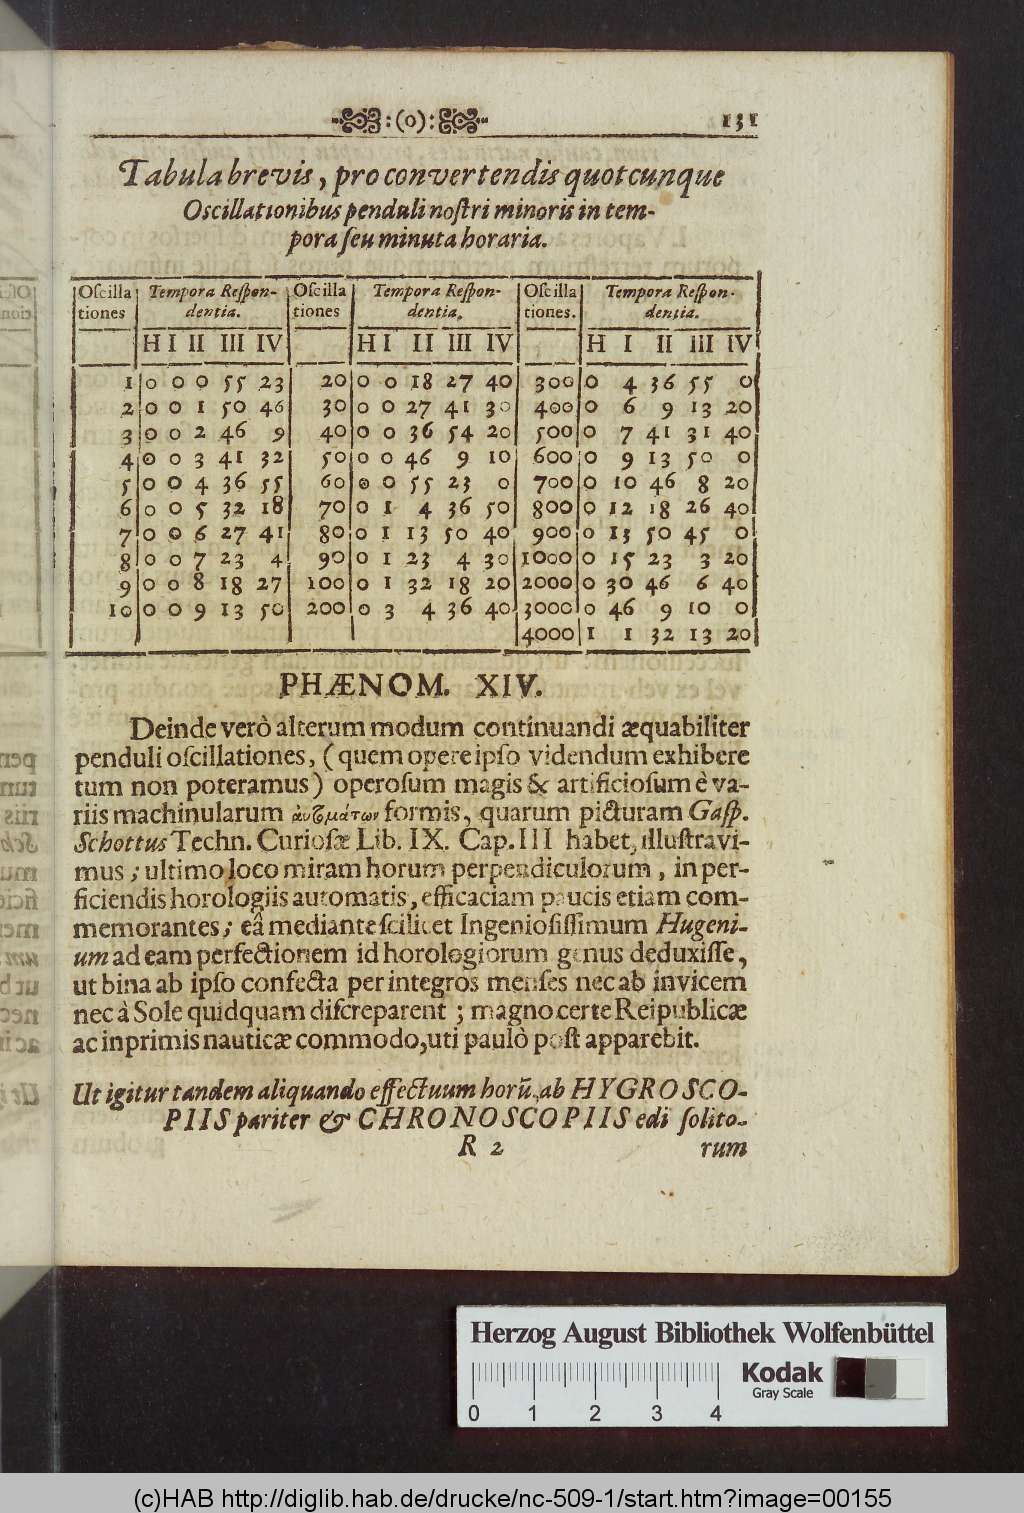 :(o): 131
Tabula brevis, pro convertendis quotcunque
Oſcillationibus penduli noſtri minoris in tem-
pora ſeu minuta horaria.
Oſcilla Tempora Reſpon- Oſcilla Tempora Reſpon- Oſcilla Tempora Reſpon-
tiones dentia. tiones dentia. tiones. dentia.
H I II III IV H I II III IV H I II III IV
1 0 0 0 55 23 20 0 0 18 27 40 300 0 4 36 55 0
2 0 0 1 50 46 30 0 0 27 41 30 400 0 6 9 13 20
3 0 0 2 46 9 40 0 0 36 54 20 500 0 7 41 31 40
4 0 0 3 41 32 50 0 0 46 9 10 600 0 9 13 50 0
5 0 0 4 36 55 60 0 0 55 23 0 700 0 10 46 8 20
6 0 0 5 32 18 70 0 1 4 36 50 800 0 12 18 26 40
7 0 0 6 27 41 80 0 1 13 50 40 900 0 13 50 45 0
8 0 0 7 23 4 90 0 1 23 4 30 1000 0 15 23 3 20
9 0 0 8 18 27 100 0 1 32 18 20 2000 0 30 46 6 40
10 0 0 9 13 50 200 0 3 4 36 40 3000 0 46 9 10 0
4000 1 1 32 13 20
PHÆNOM. XIV.
Deinde verò alterum modum continuandi æquabiliter
penduli oſcillationes, (quem opere ipſo videndum exhibere
tum non poteramus) operoſum magis & artificioſum è va-
riis machinularum ἀυτομάτων formis, quarum picturam Gaſp.
Schottus Techn. Curioſæ Lib. IX. Cap. III habet, illuſtravi-
mus; ultimo loco miram horum perpendiculorum, in per-
ficiendis horologiis automatis, efficaciam paucis etiam com-
memorantes; eâ mediante ſcilicet Ingenioſiſſimum Hugeni-
um ad eam perfectionem id horologiorum genus deduxiſſe,
ut bina ab ipſo confecta per integros menſes nec ab invicem
nec à Sole quidquam diſcreparent; magno certe Reipublicæ
ac inprimis nauticæ commodo, uti paulò poſt apparebit.
Ut igitur tandem aliquando effectuum horũ, ab HYGROSCO-
PIIS pariter & CHRONOSCOPIIS edi ſolito-
R 2 rum
Herzog August Bibliothek Wolfenbüttel
Kodak
Gray Scale
0 1 2 3 4
(c)HAB http://diglib.hab.de/drucke/nc-509-1/start.htm?image=00155